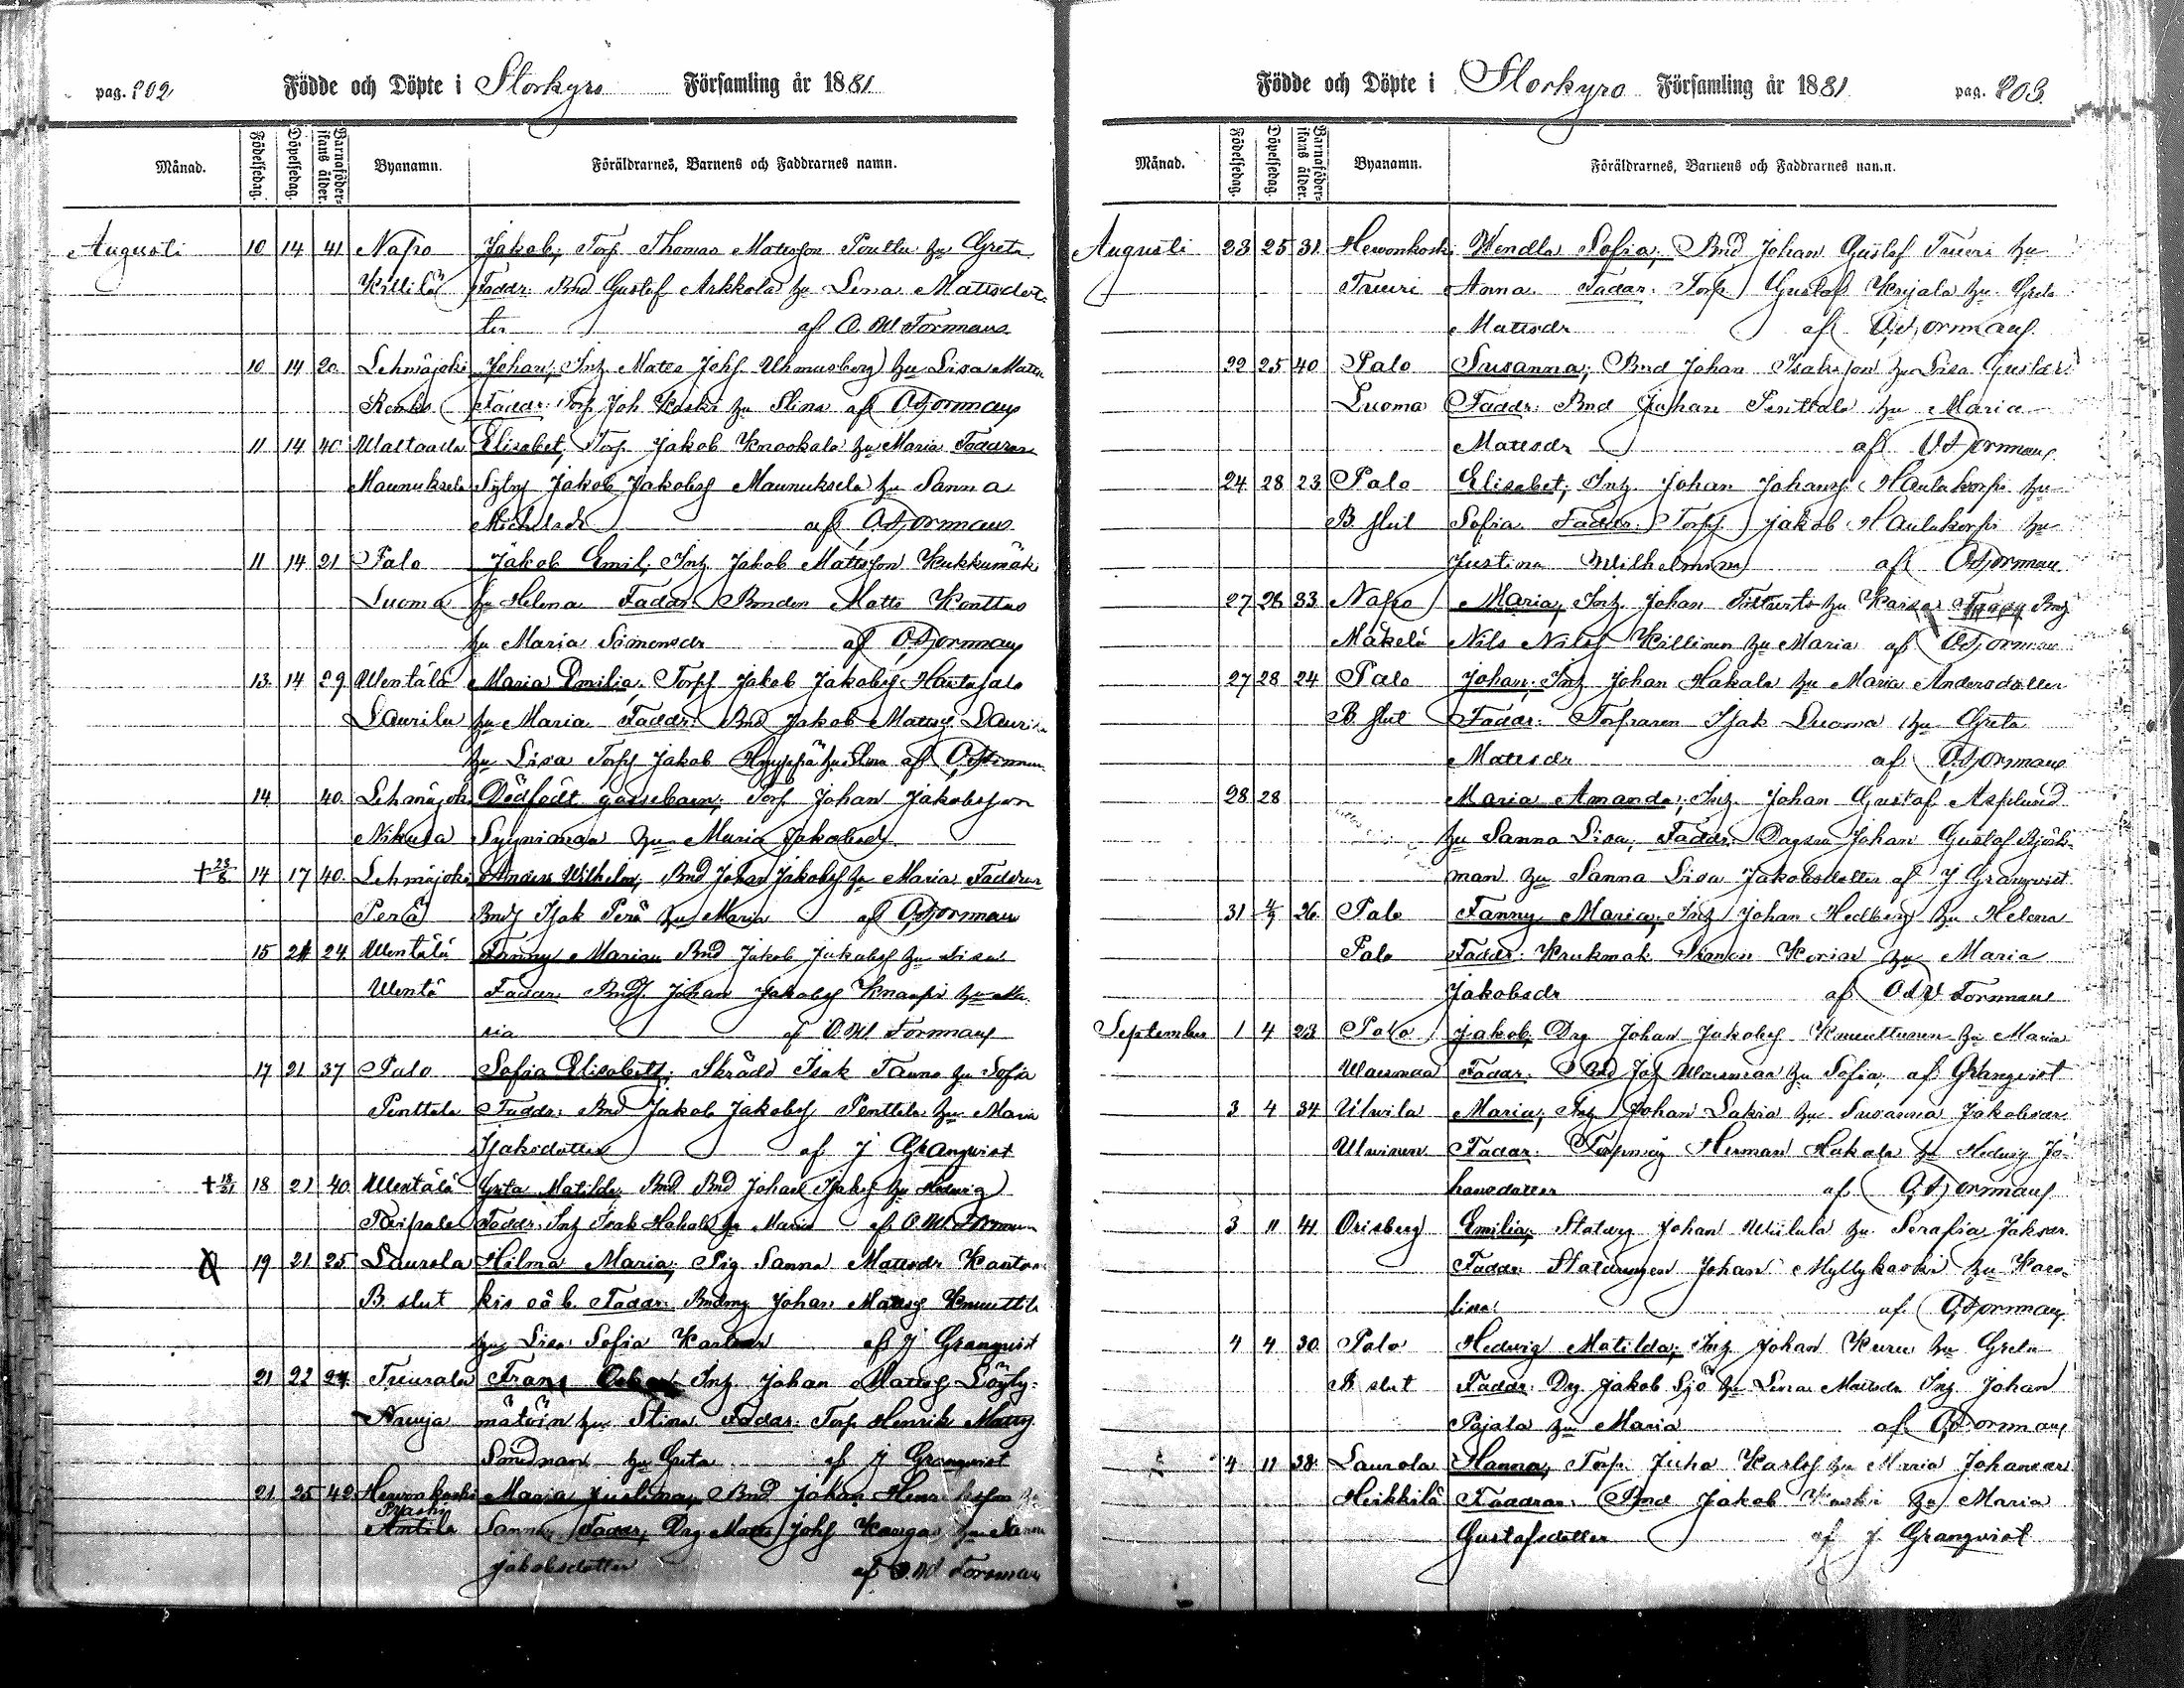 pag. 202 Födde och Döpte i Storkyro Församling år 1881
Månad. Födelsedag. Döpelsedag. Barnaföderskans ålder. Byanamn. Föräldrarnes, Barnens och Faddrarnes namn.
Augusti 10 14 41 Napo Jakob; Torp Thomas Matsson Poutta hu Greta
Killilä Faddr. Bnd Gustaf Arkkola hu Lena Mattsdot-
ter af O. W. Forsmans
10 14 20 Lehmäjoki Johan; Inh. Matts Johs hu Lisa Matts
Faddr: Torp Joh Koski hu Stina af O. Forsmans
11 14 40 Waltaala Elisabet; Torp Jakob hu Maria Faddrar
Maunuksela Jakob Jakobss Maunuksela hu Sanna
Michelsdr af O. Forsman
11 14 21 Palo Jakob Emil; Inh. Jakob Mattsson Kukkumäk
Luoma hu Helena Faddr. Bonden Matts Konttas
hu Maria Simonsdr af O. Forsmans
13 14 29 Wentälä Maria Emilia; Torp Jakob Jakobss Hautasalo
Laurila hu Maria Faddr: Bnd Jakob Matss Lauri
hu Lisa Torp Jakob hu Stina af O. Forsman
14 40 Lehmäjoki Dödfödt gossebarn; Torp Johan Jakobsson
Nikula hu Maria Jakobsd
+ 23/8 14 17 40 Lehmäjoki Anders Wilhelm; Bnd Johan Jakobss hu Maria Faddrar
Perä Bnd Isak Perä hu Maria af O. Forsman
15 21 24 Wentälä Fanny Maria; Bnd Jakob Jakobss hu Lisa
Wentä Faddr. Bnd Johan Jakobss Knaapi hu Ma-
ria af O. W. Forsmans
17 21 37 Palo Sofia Elisabeth; Skrädd Isak Fanno hu Sofia
Penttala Faddr: Bnd Jakob Jakobss Penttila hu Maria
Isaksdotter af J Granqvist
18 21 40 Wentälä Greta Matilda; Bnd Johan Isaks hu Hedvig
Taipale Faddr. Inh Isak Hakala hu Maria af O. W. Forsman
19 21 25 Laurola Hilma Maria; Pig Sanna Mattsdr Kanto-
B. slut kis oä b. Faddr. Johan Mattss Knuuttila
hu Lisa Sofia Karlsdr af J Granqvist
21 22 24 Tuurala Frans Oskar Inh. Johan Mattss Löyly-
Nauja mätöin hu Stina Faddr. Torp Henrik Matss
Sandman hu Greta af J Granqvist
21 25 42 Hevonkoski Maria Justina; Bnd Johan Henriksson hu
Pyashy
Antila Sanna Faddr; Drg Matts Johs Kangas hu Sanna
Jakobsdotter af O. W. Forsman
Födde och Döpte i Storkyro Församling år 1881 pag. 203.
Månad. Födelsedag. Döpelsedag. Barnaföderskans ålder. Byanamn. Föräldrarnes, Barnens och Faddrarnes namn.
Augusti 23 25 31 Hewonkoski Wendla Sofia; Bnd Johan Gustaf Truuri hu
Truuri Anna. Faddr. Torp Gustaf Krijala hu Greta
Mattsdr af O. Forsmans
22 25 40 Palo Susanna; Bnd Johan Isaksson hu Lisa Gustafs
Luoma Faddr: Bnd Johan Penttala hu Maria
Mattsdr af O. Forsmans
24 28 23 Palo Elisabet; Inh. Johan Johanss Hautakorpi hu
B. slut Sofia Faddr: Torp Jakob Hautakorpi hu
Justina Wilhelmina af O. Forsman
27 28 33 Napo Maria; Inh. Johan hu Kaisa Faddr
Mäkelä Nils Nilss Killinen hu Maria af O. Forsman
27 28 24 Palo Johan; Inh Johan Hakala hu Maria Andersdotter
B. slut Faddr: Torparen Isak Luoma hu Greta
Mattsdr af O. Forsmans
28 28 Maria Amanda; Inh. Johan Gustaf Asplund
hu Sanna Lisa; Faddr. Johan Gustaf Björk-
man hu Sanna Lisa Jakobsdotter af J Granqvist
31 4/9 26 Palo Fanny Maria; Inh Johan Hedberg hu Helena
Palo Faddr: Krukmak. Simon Korian hu Maria
Jakobsdr af O W Forsmans
September 1 4 23 Palo Jakob; Drg Johan Jakobss Knuuttunen hu Maria
Wainaa Faddr: Bnd Jos hu Sofia, af Granqvist
3 4 34 Ulvila Maria; Inh Johan Lakia hu Susanna Jakobsdr
Ulvinen Faddr. Herman Hakala hu Hedvig Jo-
hansdotter af O. Forsmans
3 11 41 Orisberg Emilia; Statdrg Johan Wiilula hu Serafia Jaksdr
Faddr. Statdrängen Johan Myllykoski hu Karo-
lina af O. Forsmans
4 4 30 Palo Hedvig Matilda; Inh Johan Kuru hu Greta
B. slut Faddr. Drg. Jakob Sjö hu Lena Mattsdr Inh. Johan
Pajala hu Maria af O. Forsmans
4 11 38 Laurola Hanna; Torp. Juha Karlss hu Maria Johansdr
Heikkilä Faddrar. Bnd Jakob Koski hu Maria
Gustafsdotter af J. Granqvist